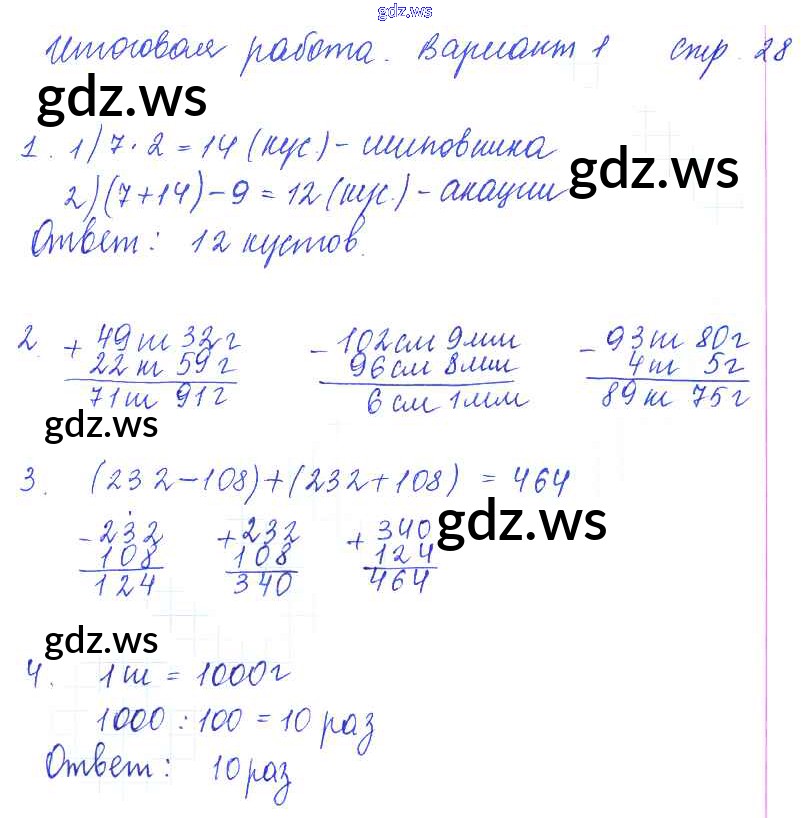 gdz.ws
Итоговая работа. Вариант 1 стр. 28
gdz.ws
1. 1) 7 · 2 = 14 (кус.) - шиповника
gdz.ws
2) (7+14) - 9 = 12 (кус.) - акации
Ответ: 12 кустов.
2. + 49 т 32 г - 102 см 9 мм - 93 т 80 г
22 т 59 г 96 см 8 мм 4 т 5 г
71 т 91 г 6 см 1 мм 89 т 75 г
gdz.ws
3. (232-108)+(232+108) = 464
gdz.ws
- 232 + 232 + 340
108 108 124
124 340 464
gdz.ws
4. 1 т = 1000 г
1000 : 100 = 10 раз
Ответ: 10 раз